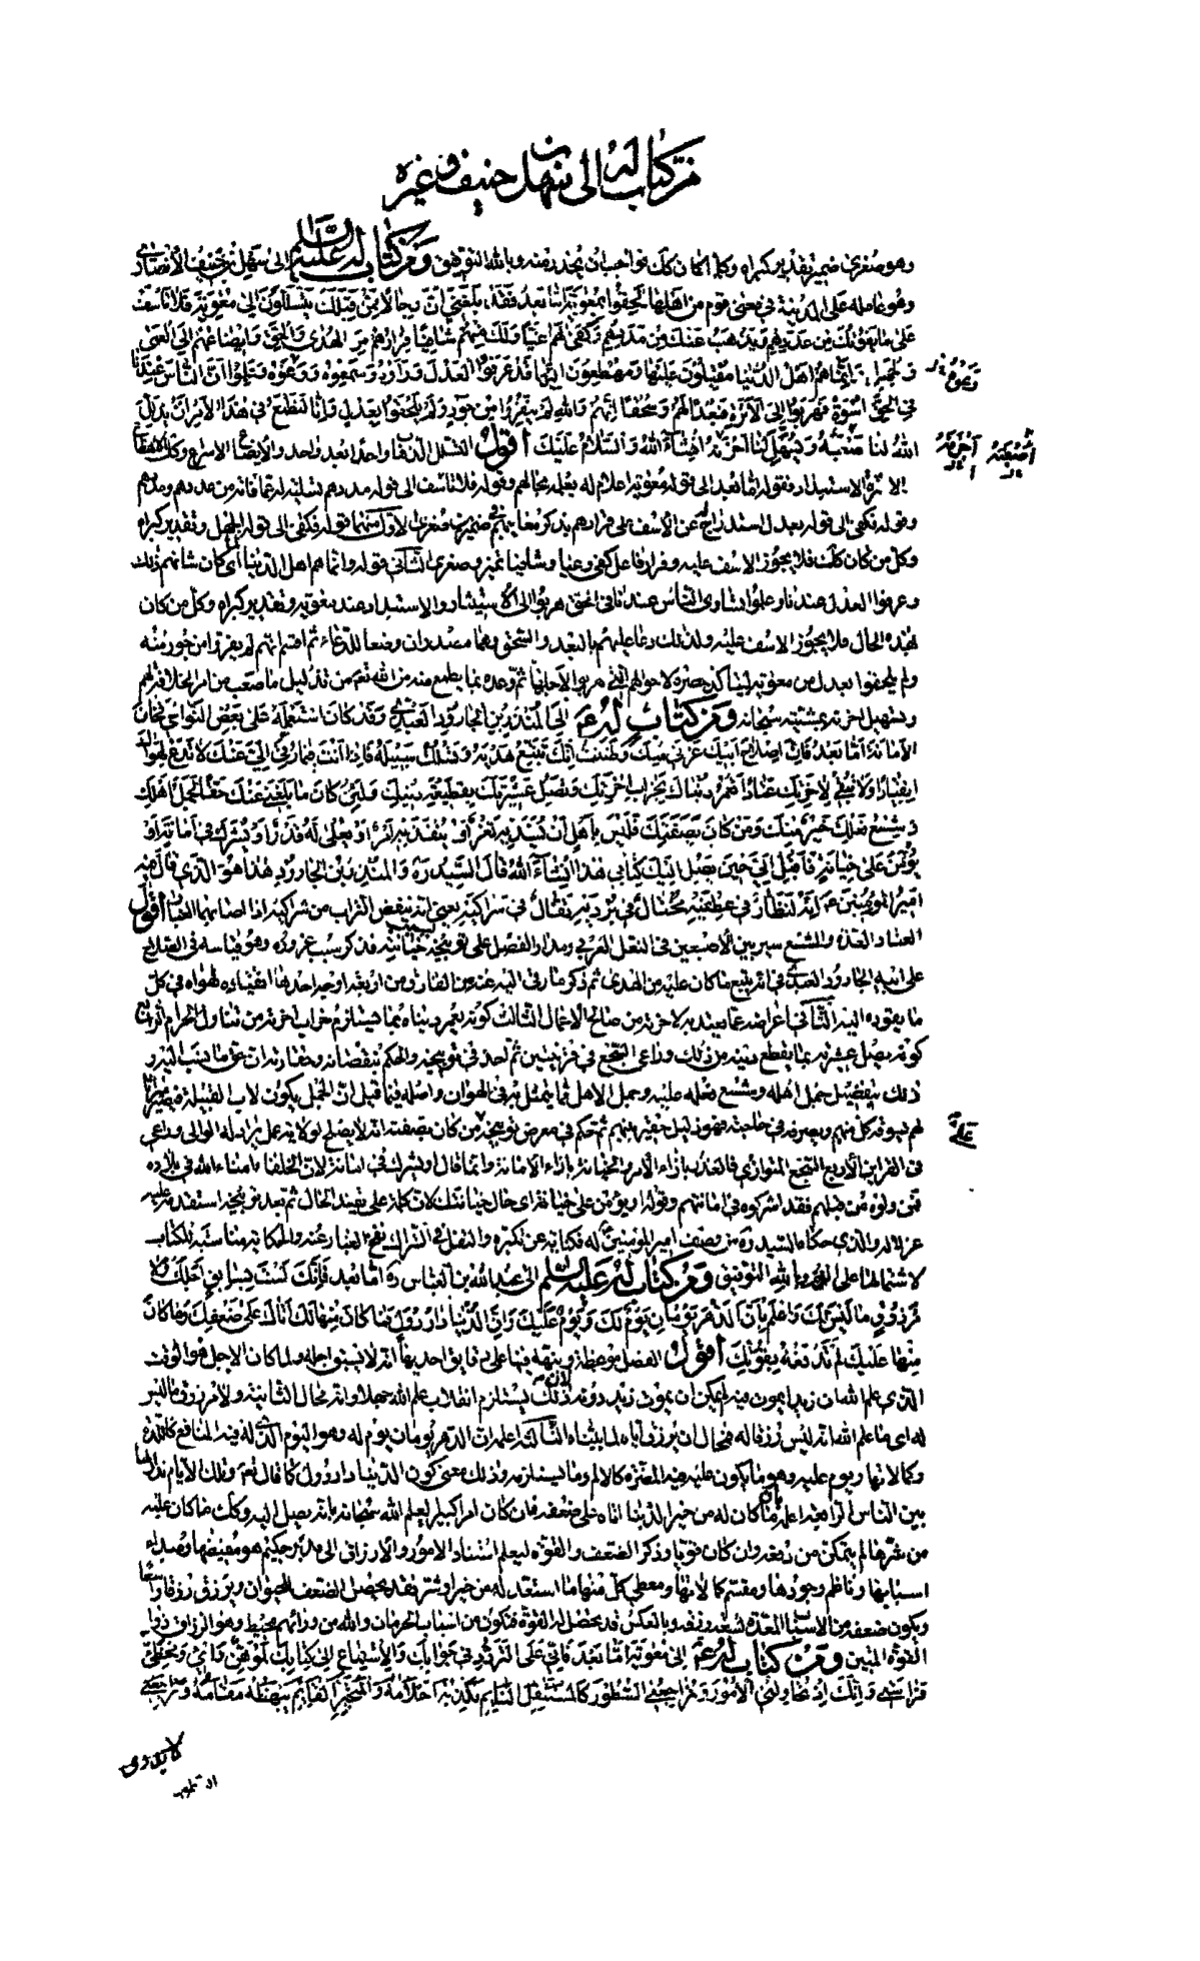 من كتاب له الى سهل بن حنيف وغيره
وهو صغرى ضمير تقدير كبراه وكلما كان كذلك فواجب ان يحذر منه وبالله التوفيق ومن كتاب له عليه السلام الى سهل بن حنيف الانصارى
وهو عامله على المدينة فى معنى قوم من اهلها لحقوا بمعوية اما بعد فقد بلغنى ان رجالا ممن قبلك يتسللون الى معوية فلا تأسف
على ما يفوتك من عددهم ويذهب عنك من مددهم فكفى لهم غيا ولك منهم شافيا فرارهم من الهدى والحق وايضاعهم الى العمى
والجهل وانما هم اهل الدنيا مقبلون عليها ومهطعون اليها قد عرفوا العدل ورأوه وسمعوه ووعوه وعلموا ان الناس عندنا
فى الحق اسوة فهربوا الى الاثرة فبعدا لهم وسحقا انهم والله لم ينفروا من جور ولم يلحقوا بعدل وانا لنطمع فى هذا الامر ان يذلل
الله لنا صعبه ويسهل لنا حزنه ان شاء الله والسلام عليك اقول التسلل الذهاب واحدا بعد واحد والايضاع الاسراع وكذلك الاهطاع
الاثرة الاستبداد فقوله اما بعد الى قوله معوية اعلام له بعلمه بحالهم وقوله فلا تأسف الى قوله مددهم تسلية له عما فاته من عددهم ومددهم
وقوله فكفى الى قوله بعدل استدراج عن الاسف على فرارهم بذكر معايبهم فى ضميرين صغرى الاول منهما قوله فكفى الى قوله الجهل وتقدير كبراه
وكل من كان كذلك فلا يجوز الاسف عليه وفراره فاعل كفى وغيا وشافيا تميز وصغرى الثانى قوله وانما هم اهل الدنيا اى كان شانهم ذلك
وعرفوا العدل عندنا وعلموا تساوى الناس عندنا فى الحق هربوا الى الاستيثار والاستبداد عند معوية وتقدير كبراه وكل من كان
بهذه الحال فلا يجوز الاسف عليه ولذلك دعا عليهم بالبعد والسحق وهما مصدران وضعا للدعاء ثم اقسم انهم لم يفروا من جور منه
ولم يلحقوا بعدل من معوية ليتاكد حصره لاحوالهم التى هربوا لاجلها ثم وعده بما يطمع منه من الله تعم من تذليل ما صعب من امر الخلافة لهم
وتسهيل حزنه بمشيته سبحانه ومن كتاب له ع الى المنذر بن الجارود العبدى وقد كان استعمله على بعض النواحى فخان
الامانة اما بعد فان صلاح ابيك غرنى منك وظننت انك تتبع هديه وتسلك سبيله فاذا انت فيما رقى الى عنك لا تدع لهواك
انقيادا ولا تبقى لاخرتك عتادا تعمر دنياك بخراب اخرتك وتصل عشيرتك بقطيعة دينك ولئن كان ما بلغنى عنك حقا لجمل اهلك
وشسع نعلك خير منك ومن كان بصفتك فليس باهل ان يسد به ثغر او ينفذ به امر او يعلى له قدر او يشرك فى امانة او
يؤمن على خيانة فاقبل الى حين يصل اليك كتابى هذا انشاء الله قال السيد ره والمنذر بن الجارود هذا هو الذى قال فيه
امير المؤمنين ع انه لنظار فى عطفيه مختال فى برديه تفال فى شراكيه يعنى انه ينفض التراب من شراكيه اذا اصابهما الغبار اقول
العتاد العدة والشسع سير بين الاصبعين فى النعل العربى ومدار الفصل على توبيخه بسبب خيانته فذكر سبب غروره وهو قياسه فى الصلاح
على ابيه الجارود العبدى فى انه يتبع ما كان عليه من الهدى ثم ذكر ما رقى اليه عنه من الفارق من اربعة اوجه احدها انقياده لهواه فى كل
ما يقوده اليه الثانى اعراضه عما يعتد به لاخرته من صالح الاعمال الثالث كونه يعمر دنياه بما يستلزم خراب اخرته من تناول الحرام الرابع
كونه يصل عشيرته بما يقطع دينه من ذلك وراعى السجع فى قرينتين ثم اخذ فى توبيخه والحكم بنقصانه وحقارته ان حق ما ينسب اليه
ذلك بتفضيل جمل اهله وشسع نعله عليه وجمل الاهل مما يتمثل به فى الهوان واصله فيما قيل ان الجمل يكون لاب القبيلة فيصير ميراثا
لهم يسوقه كل منهم ويصرفه فى حاجته فهو ذليل حقير بينهم ثم حكم فى معرض توبيخه من كان بصفته انه لا يصلح لولاية عمل يراه له الوالى وراعى
فى القراين الاربع السجع المتوازى فالقدر بازاء الامر والخيانة بازاء الامانة وانما قال او يشرك فى امانة لان الخلفاء امناء الله فى بلاده
فمن ولوه من قبلهم فقد اشركوه فى امانتهم وقوله او يؤمن على خيانة اى حال خيانتك لان كلمة على تفيد الحال ثم بعد توبيخه استقدمه عليه
عزلا له والذى حكاه السيد ره من وصف امير المؤمنين ع له فكناية عن تكبره والتفل فى الشراك نفخ الغبار عنه والحكاية مناسبة للكتاب
لاشتمالها على الذم وبالله التوفيق ومن كتاب له عليه السلم الى عبد الله بن العباس ره اما بعد فانك لست بسابق اجلك ولا
مرزوق ما ليس لك واعلم بان الدهر يومان يوم لك ويوم عليك وان الدنيا دار دول فما كان منها لك اتاك على ضعفك وما كان
منها عليك لم تدفعه بقوتك اقول الفصل موعظة ونبهه فيها على دقايق احديها انه لا يسبق اجله ولما كان الاجل هو الوقت
الذى علم الله ان زيدا يموت فيه لم يمكن ان يموت زيد دونه لان ذلك يستلزم انقلاب علم الله جهلا وانه محال الثانية ولا مرزوق ما ليس
له اى ما علم الله انه ليس رزقا له فمحال ان يرزق اياه لما بيناه الثالثة اعلمه ان الدهر يومان يوم له وهو اليوم الذى له فيه المنافع كاللذة
وكمالاتها ويوم عليه وهو ما يكون عليه فيه المضرة كالالم وما يستلزمه وذلك معنى كون الدنيا دار دول كما قال تعم وتلك الايام نداولها
بين الناس الرابعة اعلمه بان ما كان له من خير الدنيا اتاه على ضعفه فان كان امرا كبيرا ليعلم الله سبحانه بانه يصل اليه وكذلك ما كان عليه
من شرها لم يتمكن من دفعه وان كان قويا وذكر الضعف والقوة ليعلم استناد الامور والارزاق الى مدبر حكيم هو مفيضها ومبدء
اسبابها وناظم وجودها ومقسم كمالاتها ومعطى كل منها ما استعد له من خير او شر فقد يحصل الضعف للحيوان ويرزق رزقا واسعا
ويكون ضعفه من الاسباب المعدة لسعة رزقه وبالعكس قد يحصل له القوة فتكون من اسباب الحرمان والله من ورائهم محيط وهو الرزاق ذو
القوة المتين ومن كتاب له ع الى معوية اما بعد فانى على التردد فى جوابك والاستماع الى كتابك لموهن رايى ومخطئ
فراستى وانك اذ تحاولنى الامور وتراجعنى السطور كالمستثقل النايم تكذبه احلامه والمتحير القايم يبهظه مقامه